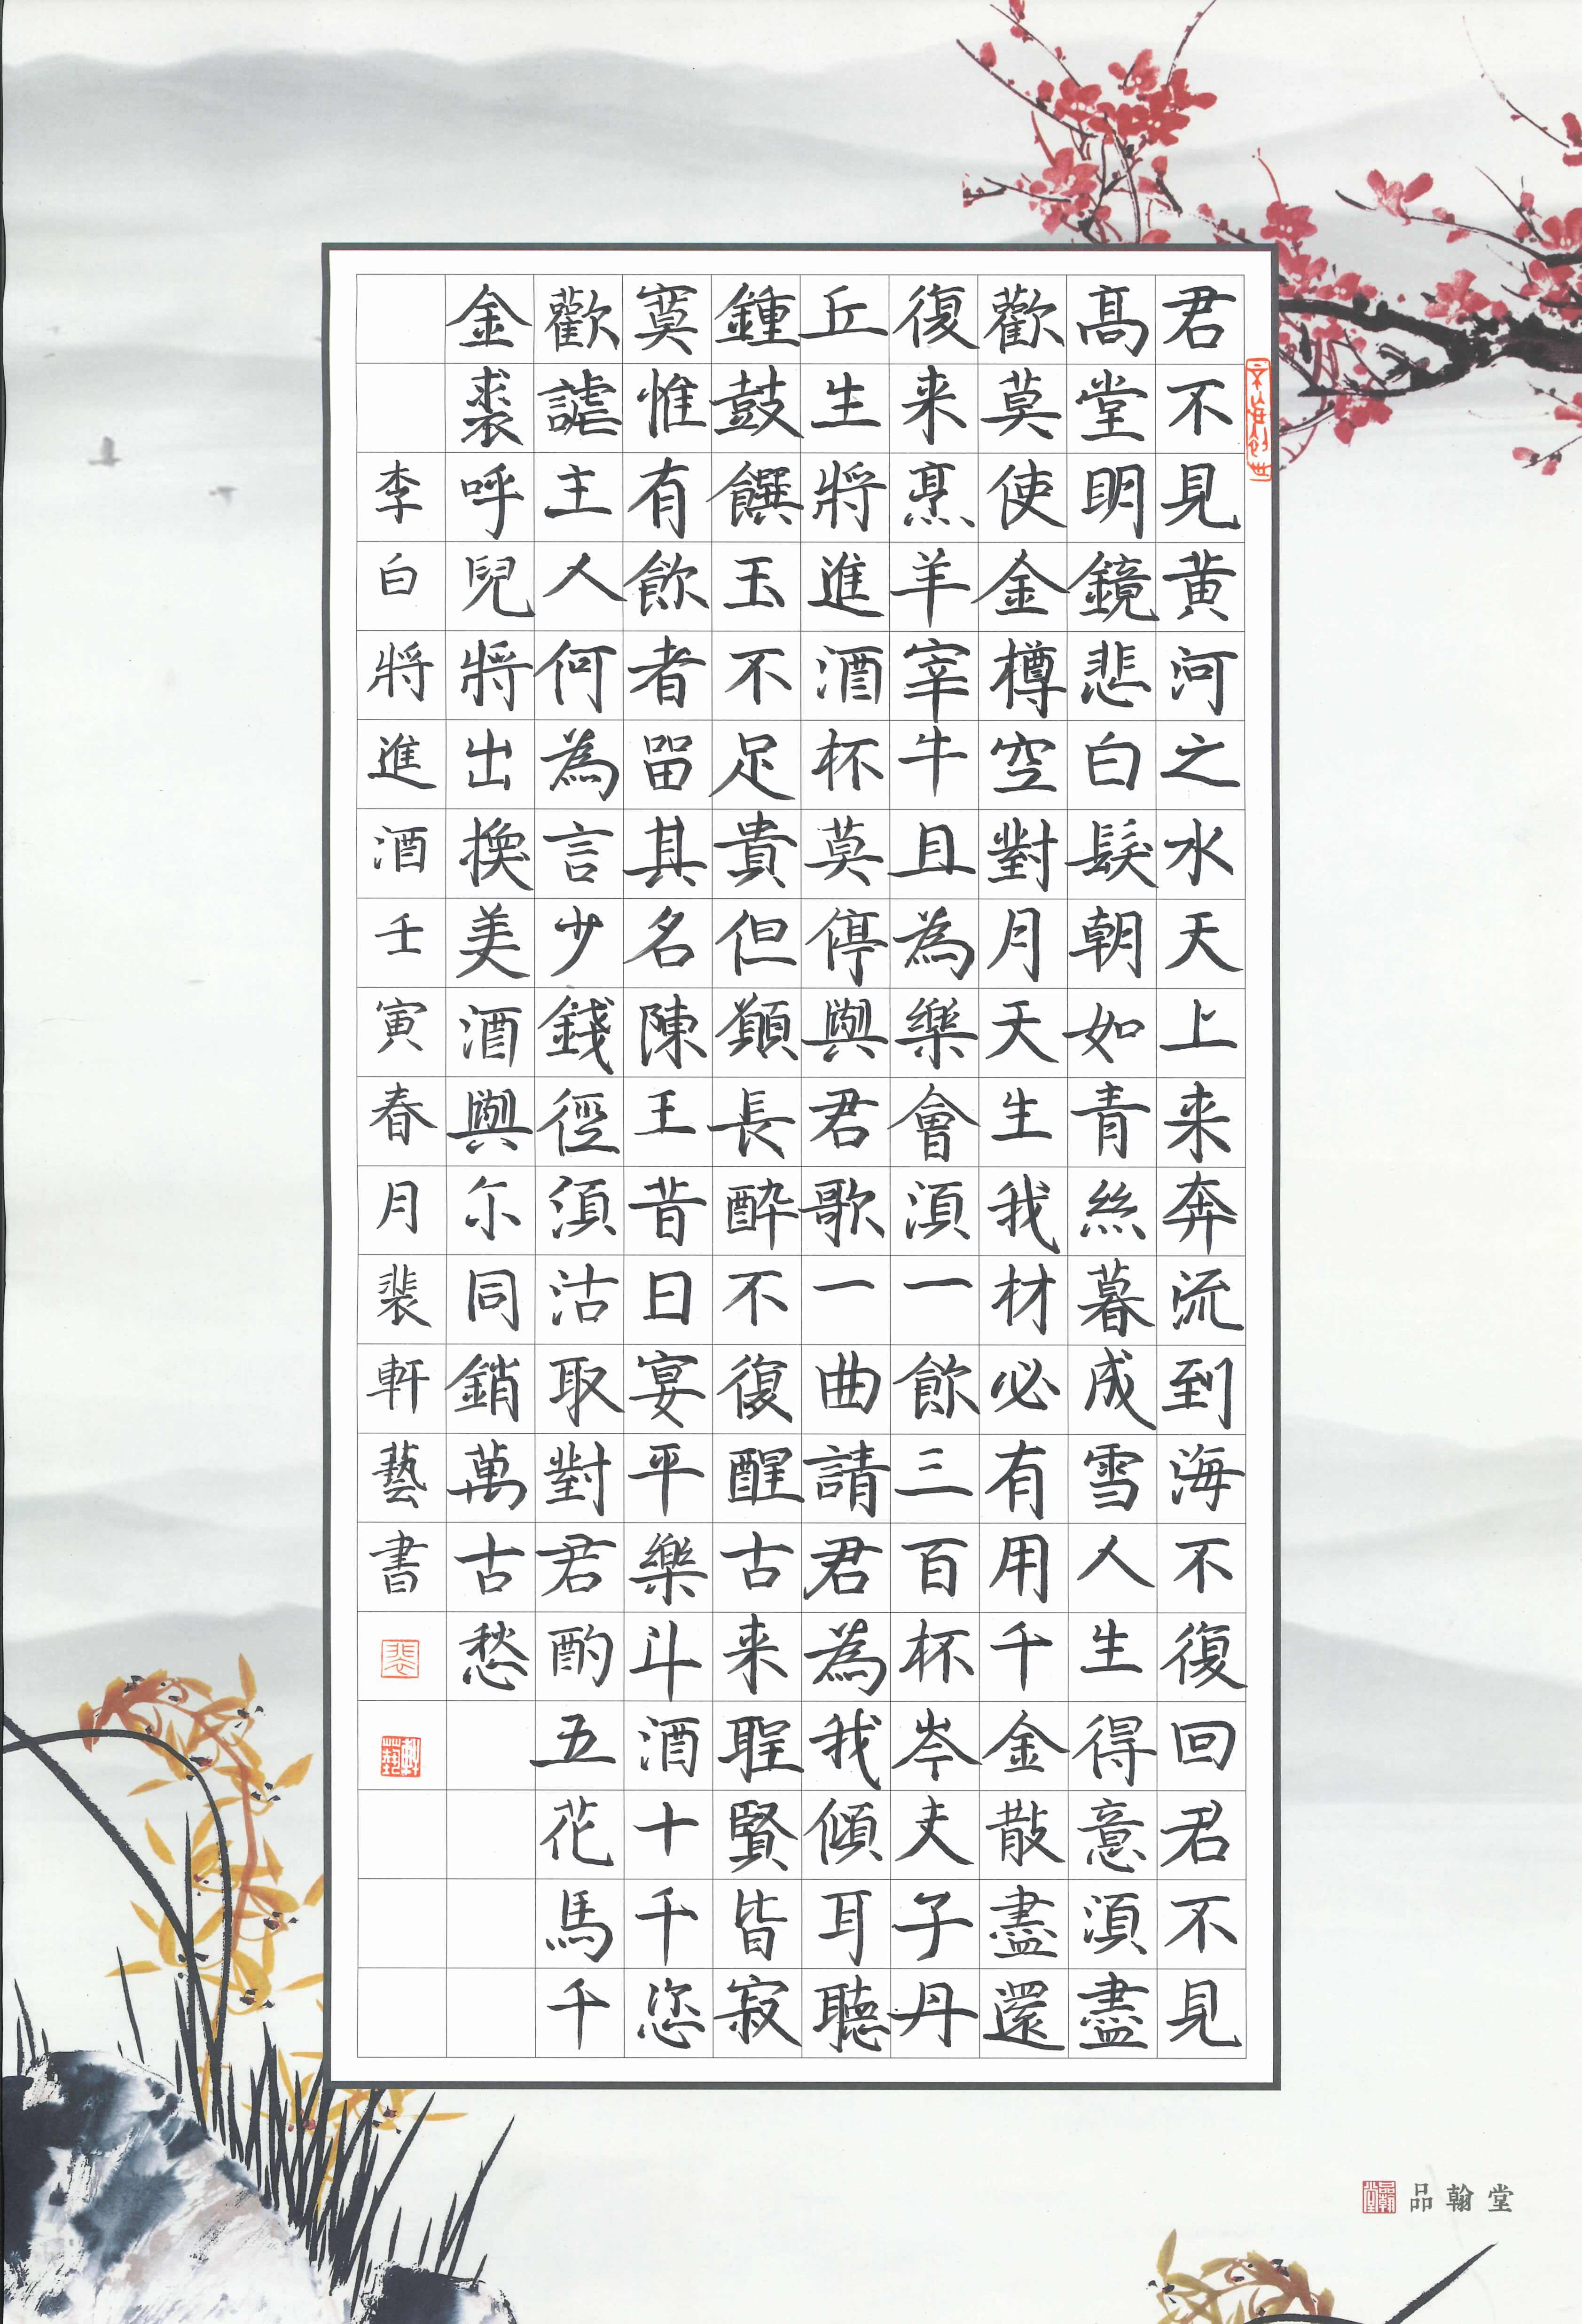 君不見黄河之水天上来奔流到海不復回君不見
高堂明鏡悲白髮朝如青絲暮成雪人生得意須盡
歡莫使金樽空對月天生我材必有用千金散盡還
復来烹羊宰牛且為樂會須一飲三百杯岑夫子丹
丘生將進酒杯莫停與君歌一曲請君為我傾耳聽
鍾鼓饌玉不足貴但願長醉不復醒古来聖賢皆寂
寞惟有飲者留其名陳王昔日宴平樂斗酒十千恣
歡謔主人何為言少錢徑須沽取對君酌五花馬千
金裘呼兒將出換美酒與尔同銷萬古愁
李白將進酒壬寅春月裴軒藝書
裴
軒藝
品翰堂
品翰堂